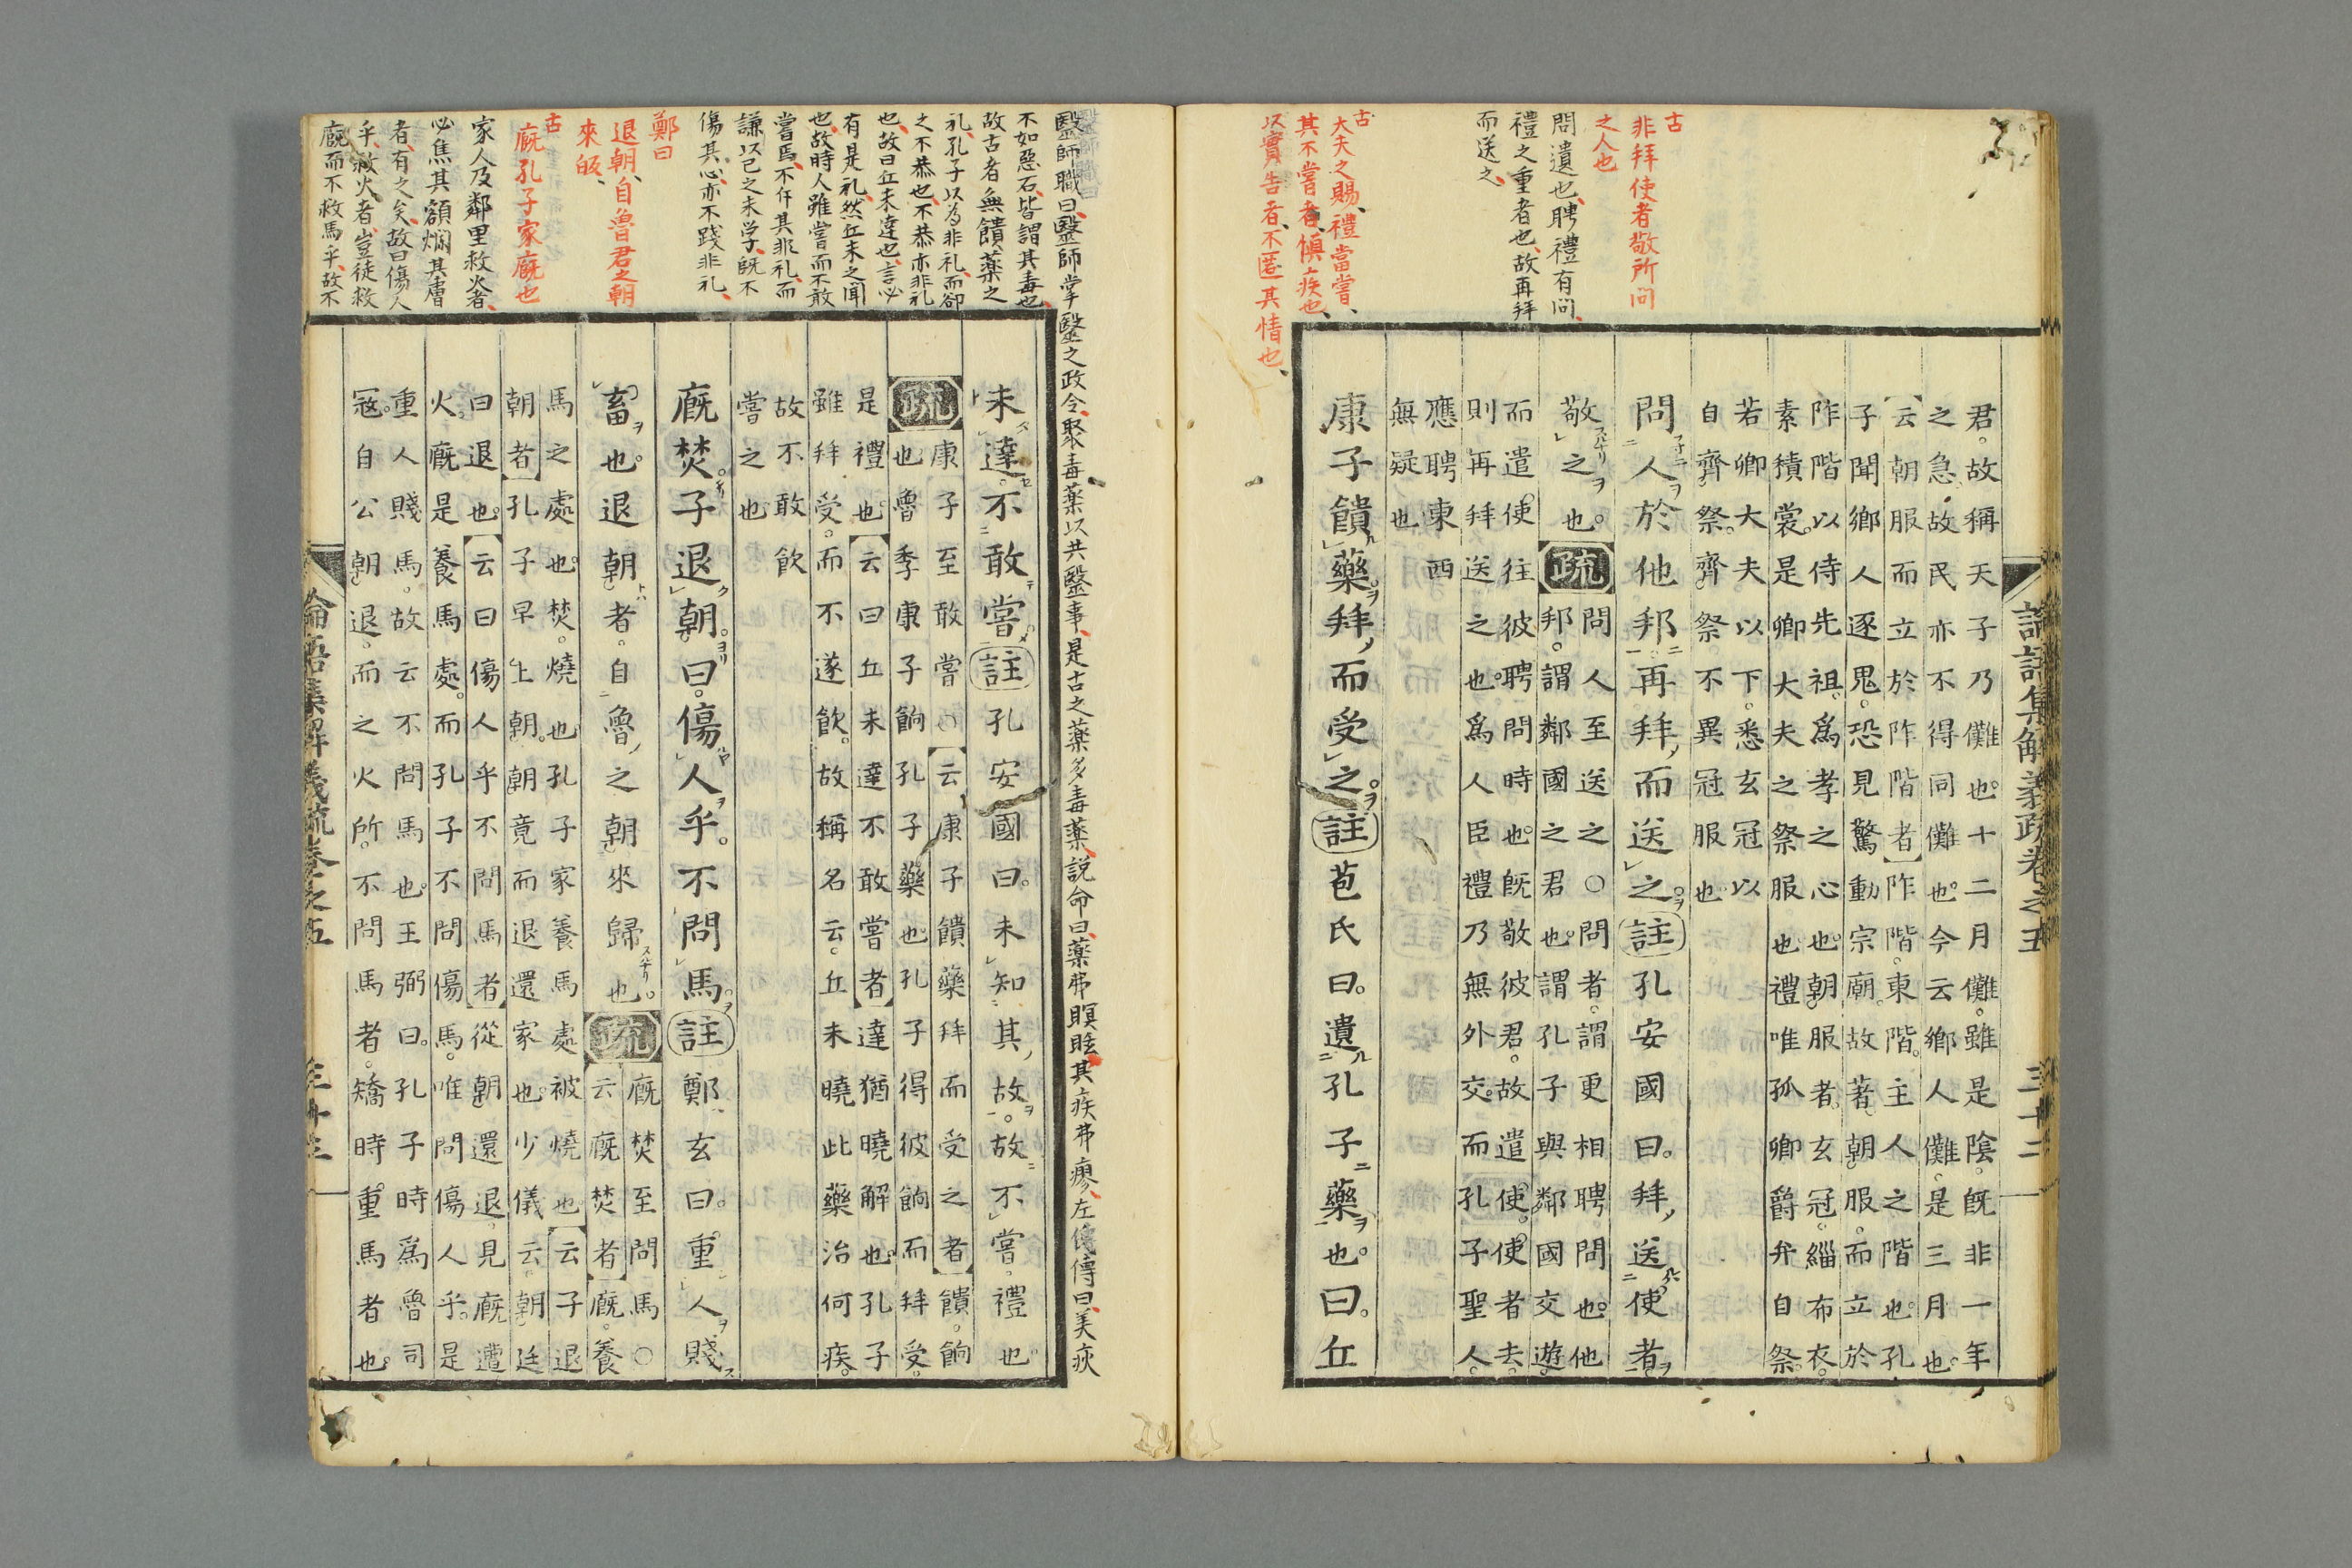 古
非拜使者敬所問
之人也
問遺也聘禮有問
禮之重者也故再拜
而送之
古
大夫之賜禮當嘗
其不嘗者慎疾也
以實告者不匿其情也
君。故稱天子乃儺也。十二月儺。雖是陰。既非一年
之急。故民亦不得同儺也。今云鄉人儺。是三月也。
云朝服而立於阼階者】阼階。東階。主人之階也。孔
子聞鄉人逐鬼。恐見驚動宗廟。故著朝服。而立於
阼階以侍先祖。爲孝之心也。朝服者。玄冠。緇布衣。
素積裳。是卿大夫之祭服也。禮唯孤卿爵弁自祭。
若卿大夫以下。悉玄冠以
自齊祭。齊祭不異冠服也
問人於他邦。再拜而送之。註孔安國曰。拜送使者
敬之也。疏
問人至送之○問者。謂更相聘問也。他
邦。謂鄰國之君也。謂孔子與鄰國交遊。
而遣使往彼聘問時也。旣敬彼君。故遣使。使者去。
則再拜送之也。爲人臣禮乃無外交。而孔子聖人。
應聘東西
無疑也
康子饋藥。拜而受之。註苞氏曰。遺孔子藥也。曰。丘
論語集解義疏卷之五 三十二
醫師職曰醫師掌醫之政令聚毒藥以共醫事是古之藥多毒藥説命曰藥弗瞑眩其疾弗瘳左傳曰美疢
不如惡石皆謂其毒也
故古者無饋藥之
礼孔子以為非礼而卻
之不恭也不恭亦非礼
也故曰丘未達也言必
有是礼然丘未之聞
也故時人雖嘗而不敢
嘗焉不仵其非礼而
謙以己之未学既不
傷其心亦不踐非礼
鄭曰
退朝自魯君之朝
來皈
古
廐孔子家廐也
家人及鄰里救火者
必焦其額爛其膚
者有之矣故曰傷人
乎救火者豈徒救
廐而不救馬乎故不
未達。不敢嘗。註孔安國曰。未知其故。故不嘗。禮也
疏
康子至敢嘗○【云康子饋藥拜而受之者】饋。餉
也。魯季康子餉孔子藥也。孔子得彼餉而拜受。
是禮也。【云曰丘未達不敢嘗者】達猶曉解也。孔子
雖拜受。而不遂飮。故稱名云。丘未曉此藥治何疾。
故不敢飲
嘗之也
廐焚。子退朝。曰。傷人乎。不問馬。註鄭玄曰。重人賤
畜也。退朝者。自魯之朝來歸也。疏
廐焚至問馬○
【云廐焚者】廐。養
馬之處也。焚。燒也。孔子家養馬處被燒也【云子退
朝者】孔子早上朝。朝竟而退還家也。少儀云。朝廷
曰退也。【云曰傷人乎不問馬者】從朝還退。見廐遭
火。廐是養馬處。而孔子不問傷馬。唯問傷人乎。是
重人賤馬。故云不問馬也。王弼曰。孔子時爲魯司
冦。自公朝退。而之火所。不問馬者。矯時重馬者也。
論語集解義疏卷之五 三十三